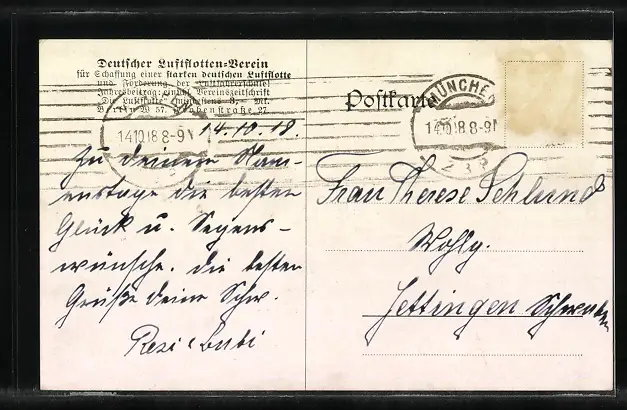 Deutscher Luftflotten-Verein
für Schaffung einer starken deutschen Luftflotte
und Förderung der Luftfahrerschule!
Jahresbeitrag: einschl. Vereinszeitschrift
"Die Luftflotte" mindestens 3,- Mk.
Berlin W 57,
Postkarte
MÜNCHEN
14.10.18.8-9N
14.10.18.8-9N
14.10.18.
Zu deinem Nam-
enstage die besten
Glück u. Segens-
wünsche. Die besten
Grüße deine Schw.
Resi
Frau Therese Schlund
Wohlg.
Jettingen Schwaben